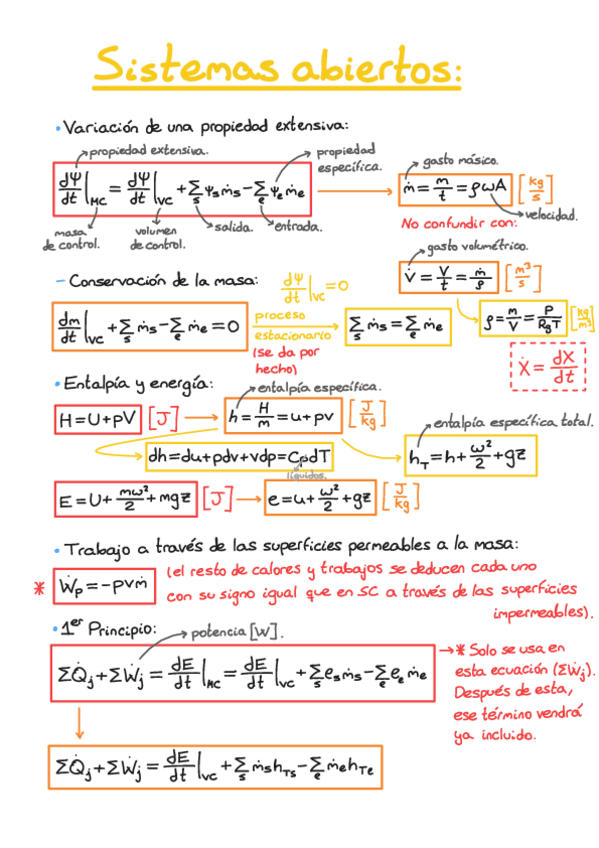 Sistemas abiertos:
• Variación de una propiedad extensiva:
propiedad extensiva.
propiedad específica.
dΨ/dt|MC = dΨ/dt|VC + Σs Ψsṁs - Σe Ψeṁe
masa de control.
volumen de control.
salida.
entrada.
gasto másico.
ṁ = m/t = ρωA [kg/s]
velocidad.
No confundir con:
gasto volumétrico.
V̇ = V/t = ṁ/ρ [m³/s]
ρ = m/V = P/RgT [kg/m³]
Ẋ = dX/dt
– Conservación de la masa:
dΨ/dt|VC = 0
dm/dt|VC + Σs ṁs - Σe ṁe = 0
proceso
estacionario
(se da por
hecho)
Σs ṁs = Σe ṁe
• Entalpía y energía:
entalpía específica.
H = U + pV [J]
h = H/m = u + pv [J/kg]
entalpía específica total.
dh = du + pdv + vdp = CpdT
líquidos.
hT = h + ω²/2 + gz
E = U + mω²/2 + mgz [J]
e = u + ω²/2 + gz [J/kg]
• Trabajo a través de las superficies permeables a la masa:
* Ẇp = -pvṁ
(el resto de calores y trabajos se deducen cada uno
con su signo igual que en SC a través de las superficies
impermeables).
• 1er Principio:
potencia [W].
ΣQ̇j + ΣẆj = dE/dt|MC = dE/dt|VC + Σs esṁs - Σe eeṁe
* Solo se usa en
esta ecuación (ΣẆj).
Después de esta,
ese término vendrá
ya incluido.
ΣQ̇j + ΣẆj = dE/dt|VC + Σs ṁshTs - Σe ṁehTe